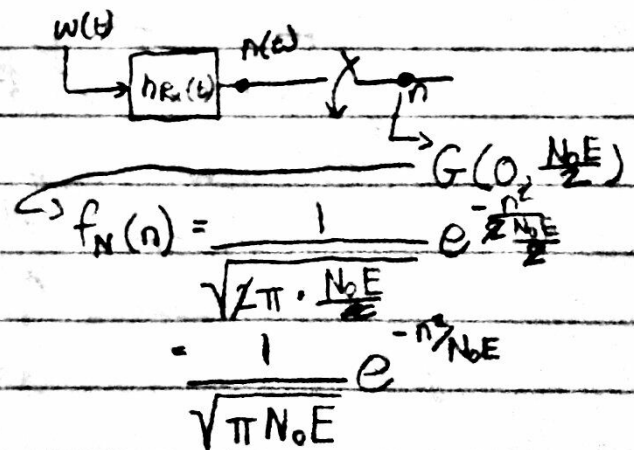 w(t)
n(t)
h_Rx(t)
n
G(0, N₀E/2)
f_N(n) = 1/√(2π · N₀E/2) e^(-n²/(2 N₀E/2))
= 1/√(πN₀E) e^(-n²/N₀E)